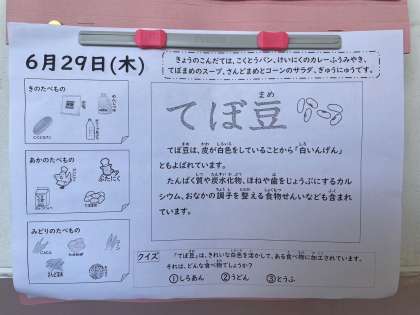 6月29日(木)
きょうのこんだては、こくとうパン、けいにくのカレーふうみやき、
てぼまめのスープ、さんどまめとコーンのサラダ、ぎゅうにゅうです。
きのたべもの
あかのたべもの
ぶたにく
みどりのたべもの
さんどまめ
まめ
てぼ豆
てぼ豆は、皮が白色をしていることから「白いんげん」
ともよばれています。
たんぱく質や炭水化物、ほねや歯をじょうぶにするカル
シウム、おなかの調子を整える食物せんいなども含まれ
ています。
クイズ
「てぼ豆」は、きれいな白色を活かして、ある食べ物に加工されています。
それは、どんな食べ物でしょうか？
①しろあん ②うどん ③とうふ